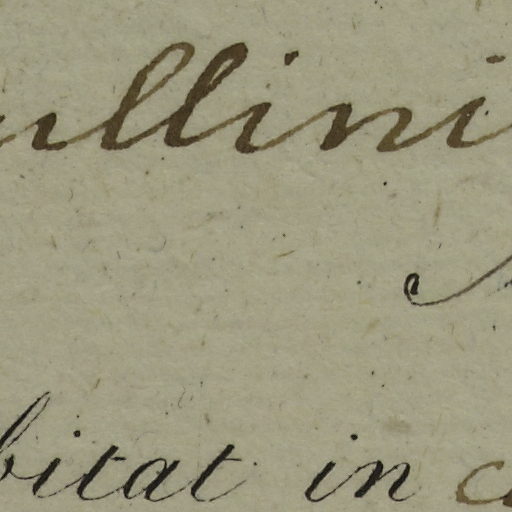 ullini
bitat in c